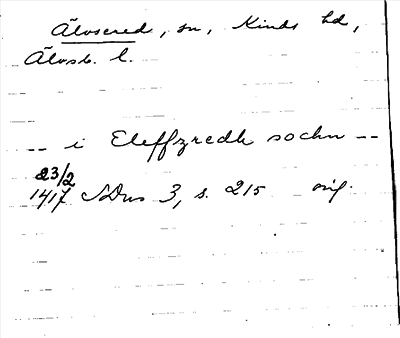 Älvsered, sn, Kinds hd,
Älvsb. l.
-- i Eleffzredh sochn --
23/2
1417 SDns 3, s. 215 orig.